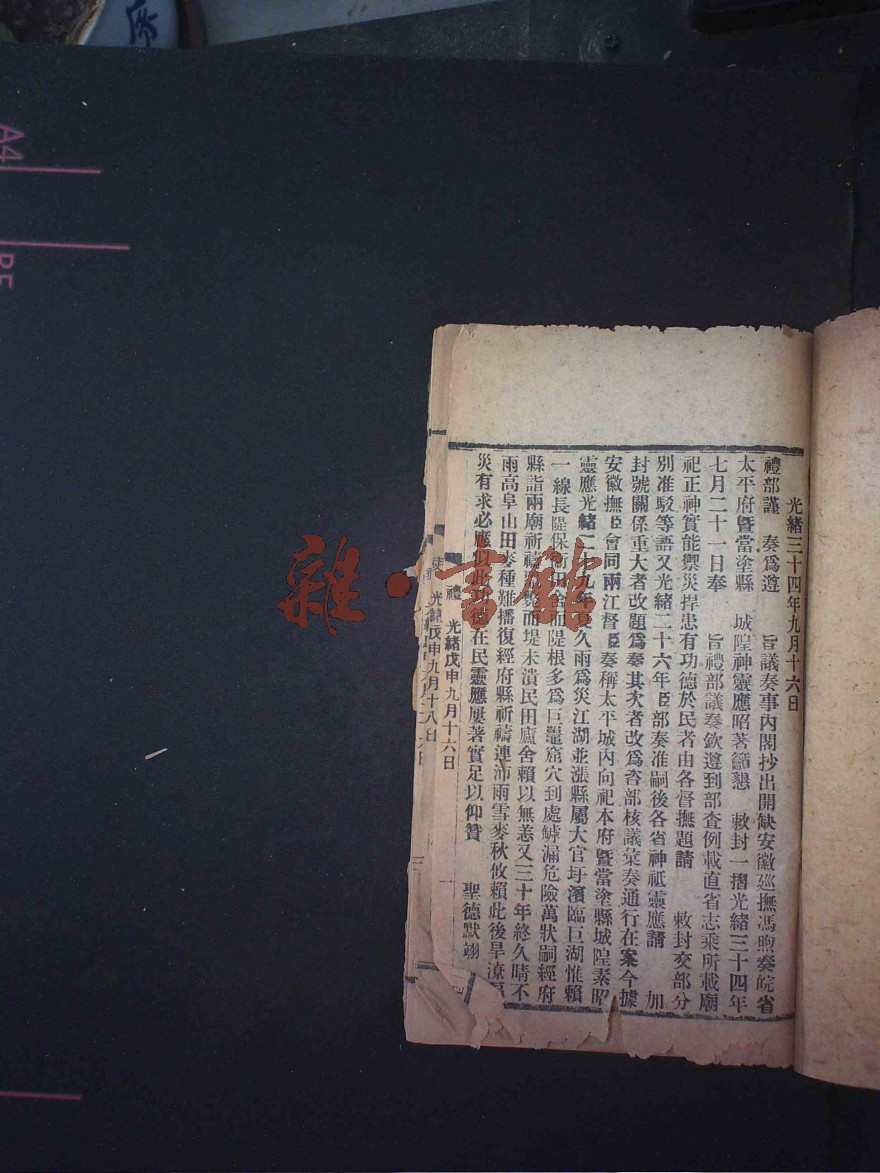 光緒三十四年九月十六日
禮部謹 奏爲遵 旨議奏事內閣抄出開缺安徽巡撫馮煦奏皖省
太平府暨當塗縣 城隍神靈應昭著籲懇 敕封一摺光緒三十四年
七月二十一日奉 旨禮部議奏欽遵到部查例載直省志乘所載廟
祀正神實能禦災捍患有功德於民者由各督撫題請 敕封交部分
別准駁等語又光緒二十六年臣部奏准嗣後各省神祇靈應請 加
封號關係重大者改題爲奏其次者改爲咨部核議彙奏通行在案今據
安徽撫臣會同兩江督臣奏稱太平城內向祀本府暨當塗縣城隍素昭
靈應光緒二十九年夏久雨爲災江湖並漲縣屬大官圩濱臨巨湖惟賴
一線長隄保衛田舍而隄根多爲巨鼉窟穴到處罅漏危險萬狀嗣經府
縣詣兩廟祈禱而堤未潰民田廬舍賴以無恙又三十年終久晴不
雨高阜山田麥種難播復經府縣祈禱連沛雨雪麥秋攸賴此後旱潦
災有求必應似此功德在民靈應屢著實足以仰贊 聖德默翊
禮 光緒戊申九月十六日 一
光緒戊申九月十八日
雜·書館
A4
B5